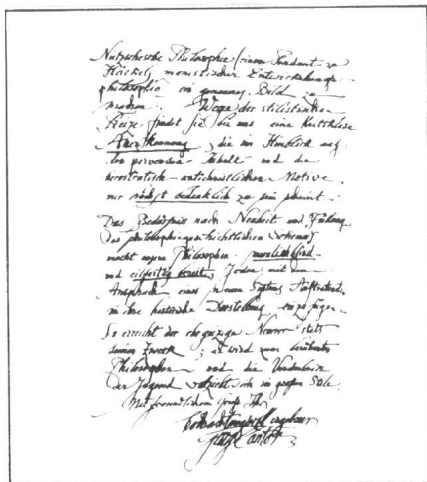 Nietzschesche Philosophie (einem Pendant zu
Häckels monistischer Entwickelungs-
philosophie) ein genaueres Bild zu
machen. Wegen der stilistischen
Reize findet sie bei uns eine kritiklose
Anerkennung, die im Hinblick auf
den perversen Inhalt und die
herostratisch-antichristlichen Motive
nur höchst bedenklich zu sein scheint.
Das Bedürfnis nach Neuheit und
des philosophiegeschichtlichen Schemas
macht unsere Philosophen moralisch blind
und eilfertig bereit, Jeden mit dem
Anspruch eines neuen Systems Auftretenden
in ihre historische Darstellung einzufügen.
So erreicht der ehrgeizige Neuerer stets
seinen Zweck; er wird zum berühmten
Philosophen und die Verderbnis
der Jugend vollzieht sich im großen Stile.
Mit freundlichem Gruß Ihr
ergebener
Georg Cantor